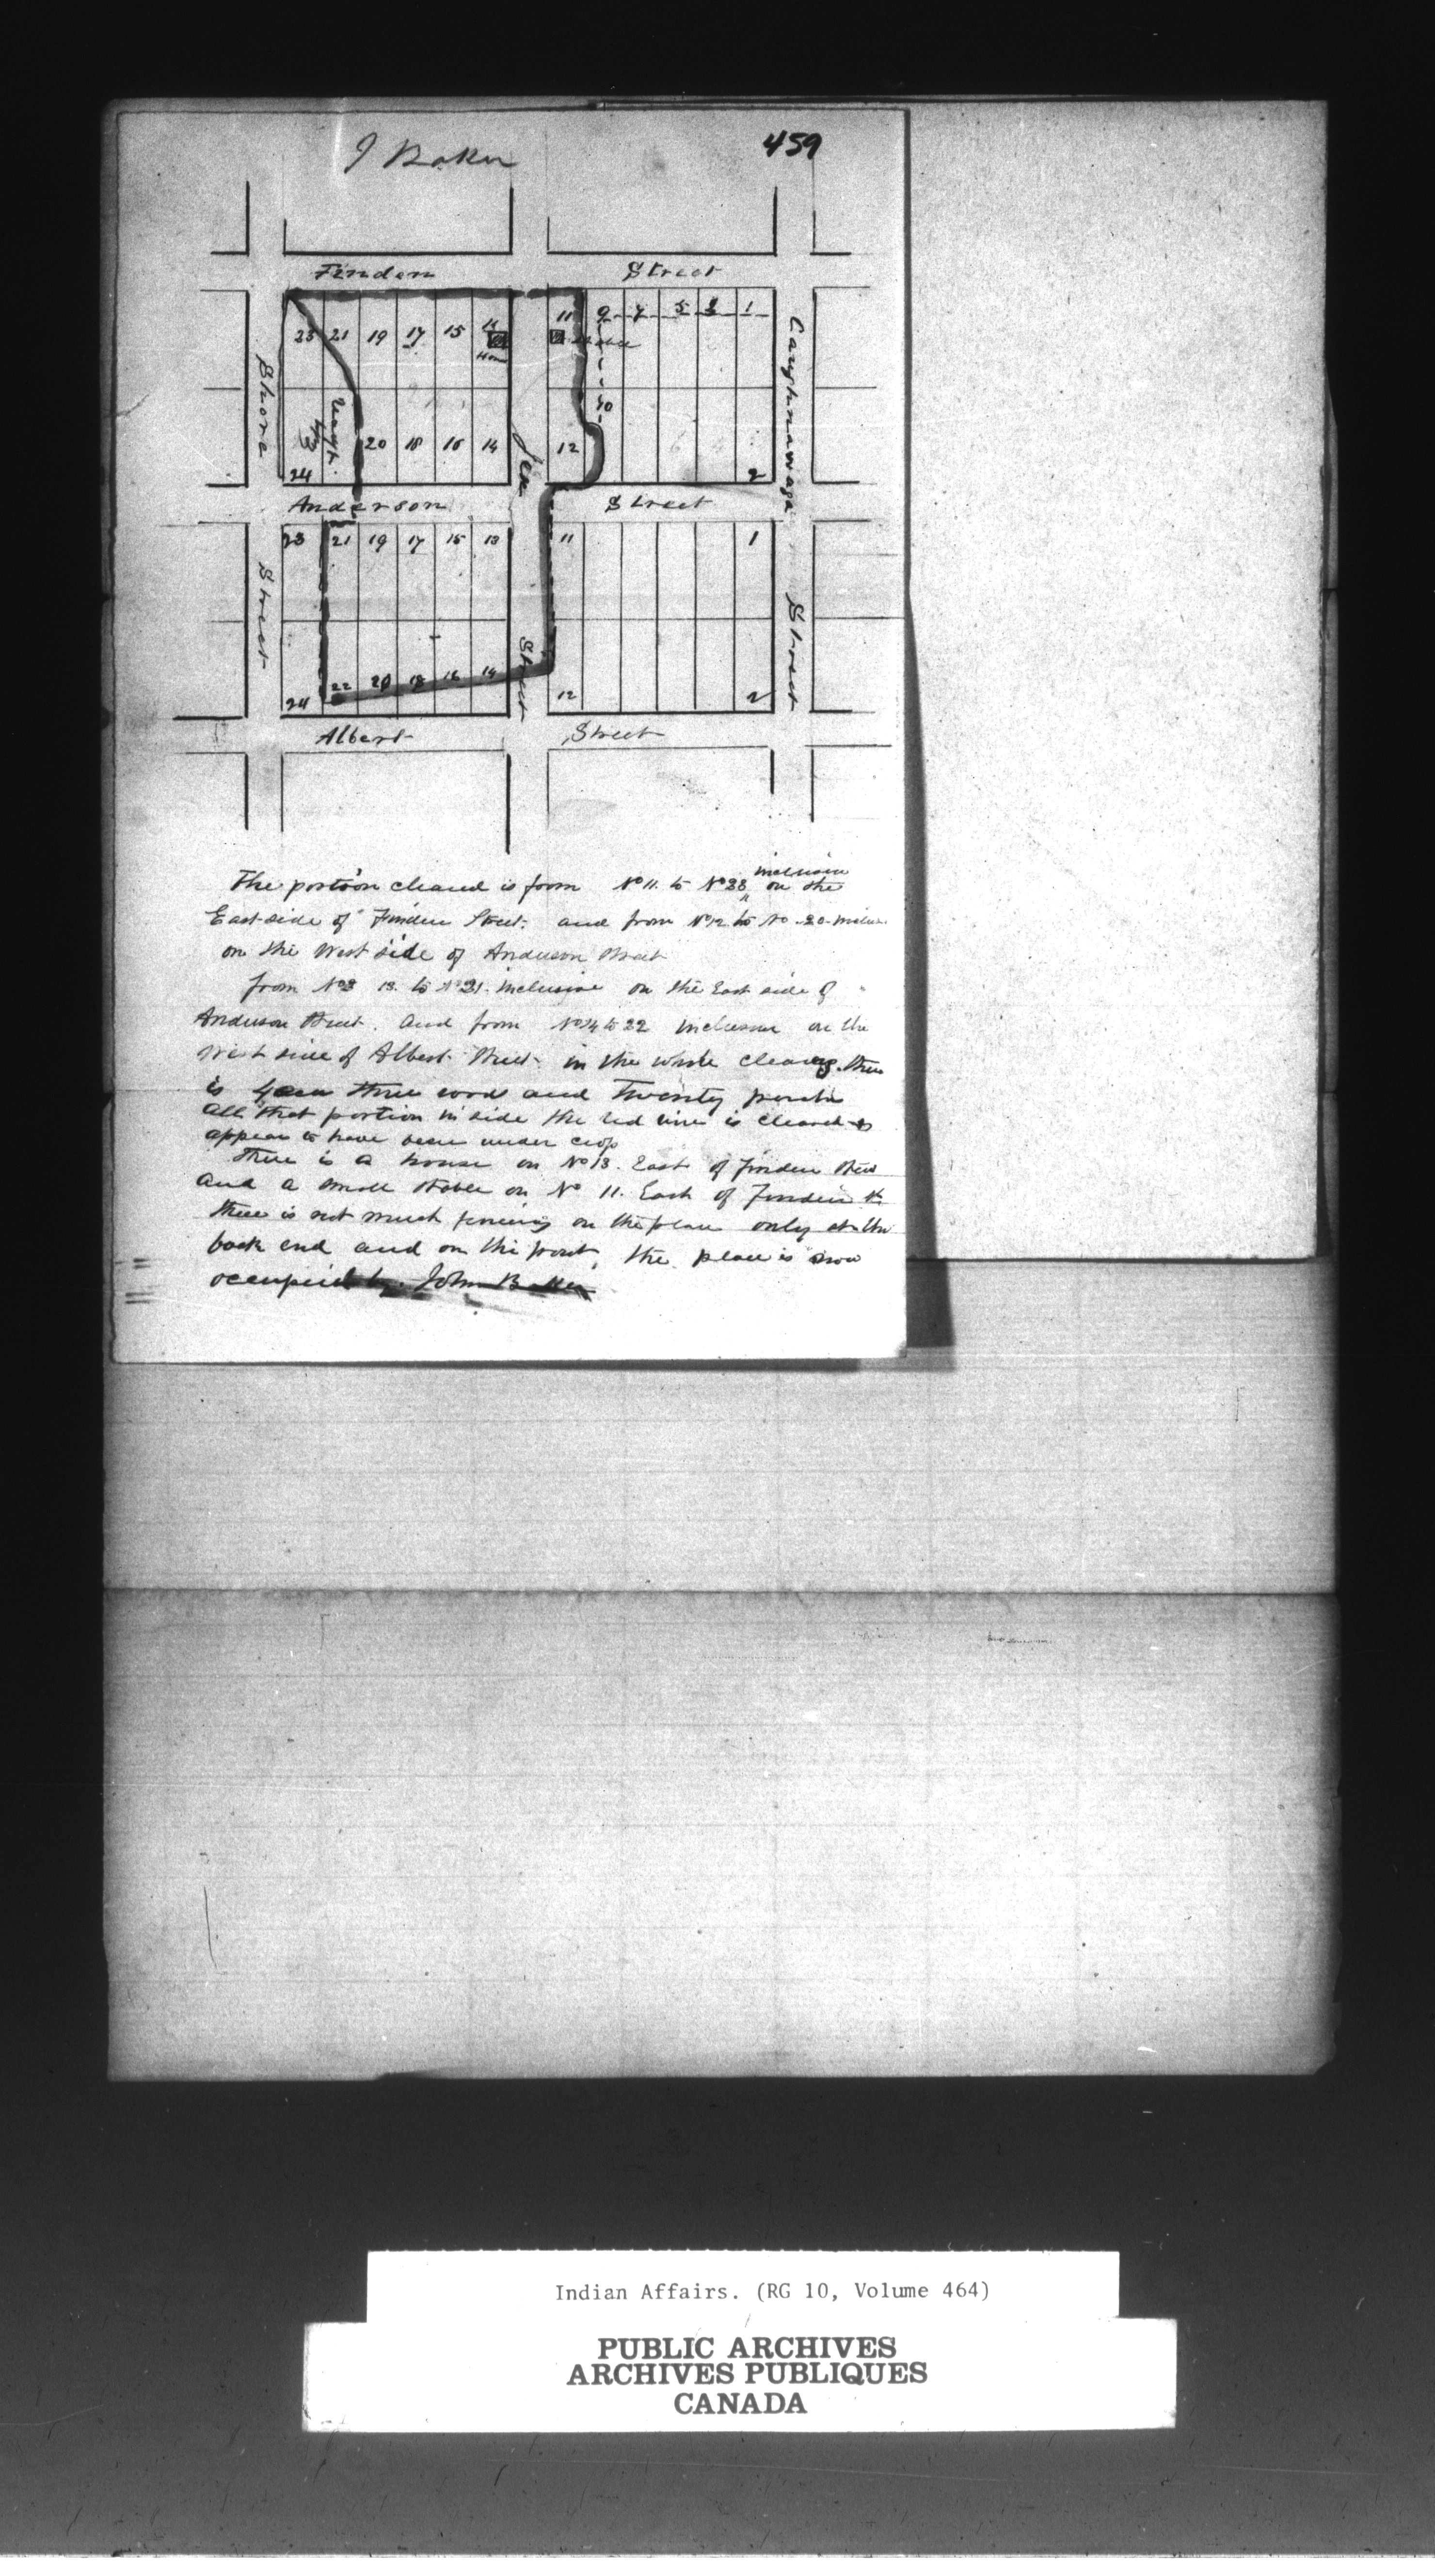 J Baker
459
Finden Street
23 21 19 17 15 11 9 7 5 3 1
House
Stable
Caughnawaga
Shore
10
20 18 16 14 12
24 2
Anderson Street
23 21 19 17 15 13 11 1
Street
Street
Street
24 22 20 18 16 14 12 2
Albert Street
inclusive
The portion cleared is from No 11. to No 23 on the
East side of Finden Street. and from No 12 to No 20
on the West side of Anderson Street
from No 13. to No 21. inclusive on the East side of
Anderson Street. and from No 14 to 22 inclusive on the
West side of Albert Street in the whole clearing there
is 4 three rood and Twenty perches
all that portion inside the red line is cleared &
appear to have been under crop
There is a house on No 13. East of Finden Street
and a small stable on No 11. East of Finden St
there is not much fencing on the place only at the
back end and on the front, the place is now
occupied by John Baker
Indian Affairs. (RG 10, Volume 464)
PUBLIC ARCHIVES
ARCHIVES PUBLIQUES
CANADA